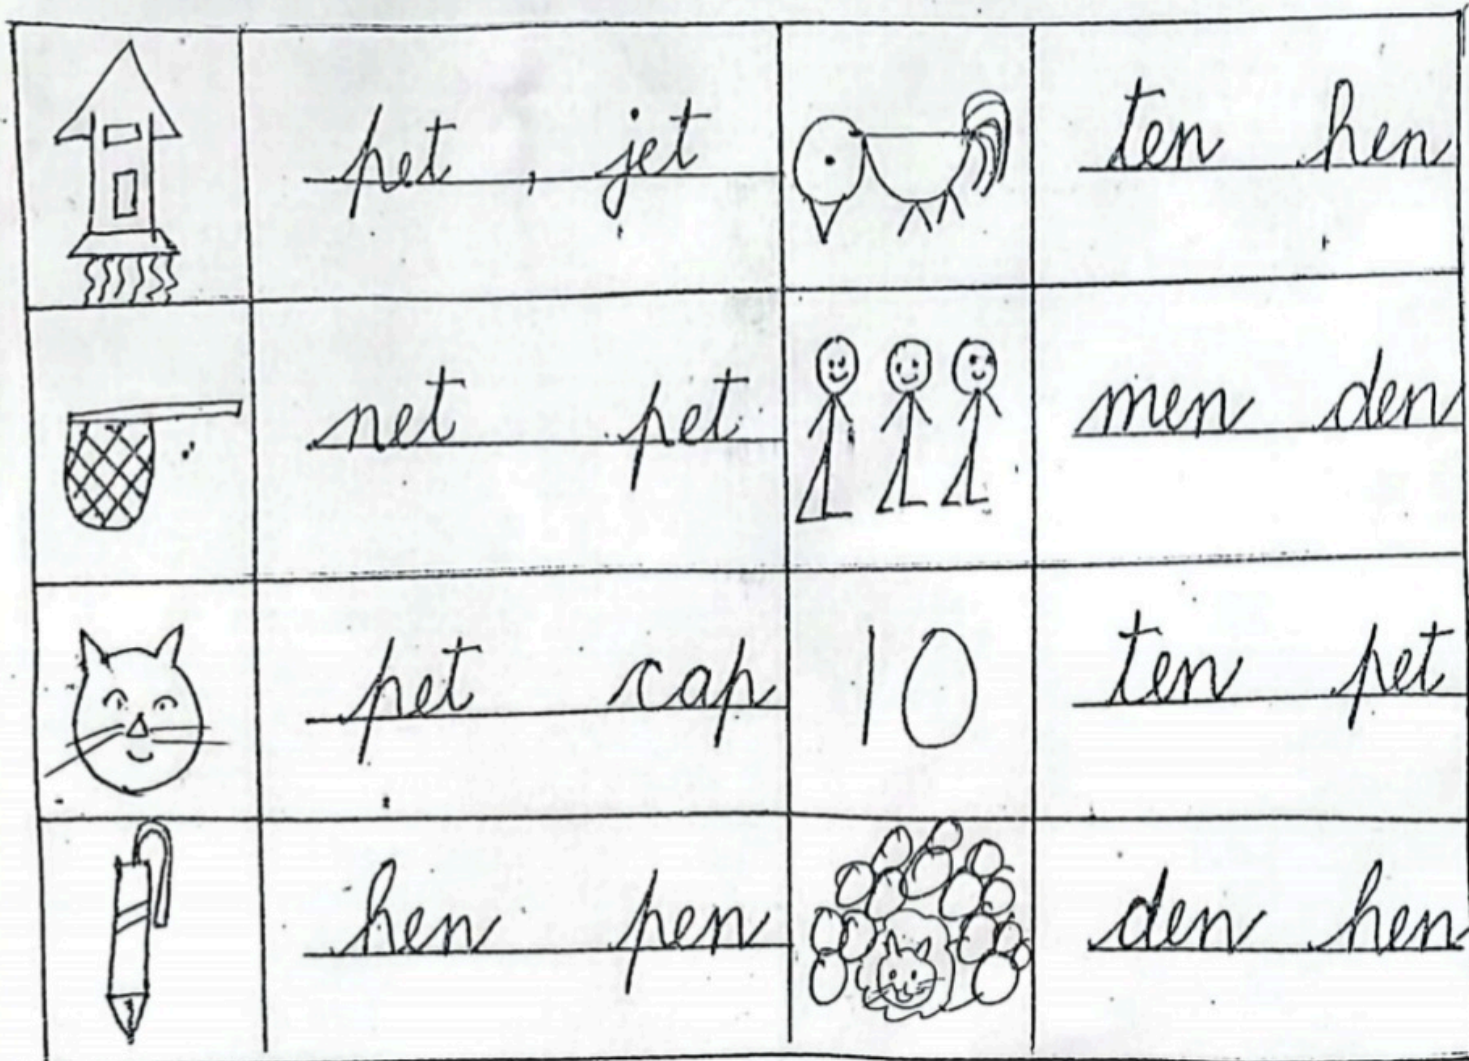 pet , jet ten hen
net pet men den
pet cap 10 ten pet
hen pen den hen